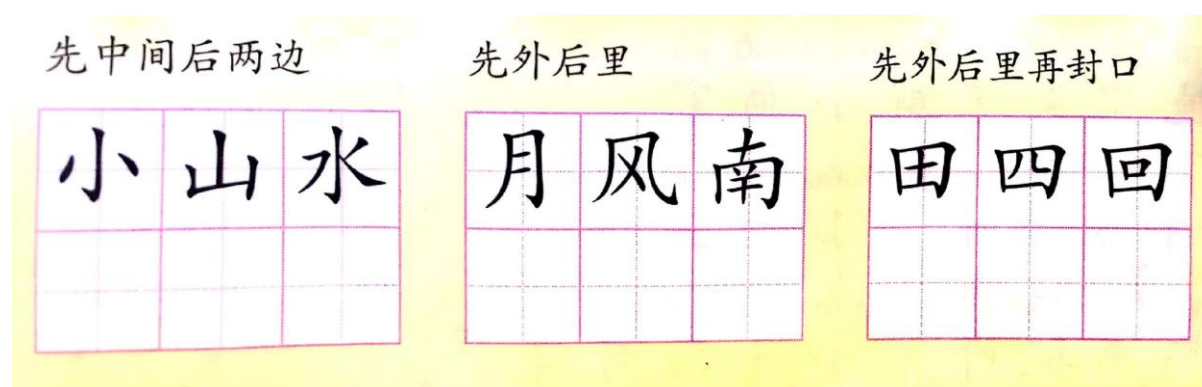 先中间后两边
小山水
先外后里
月风南
先外后里再封口
田四回